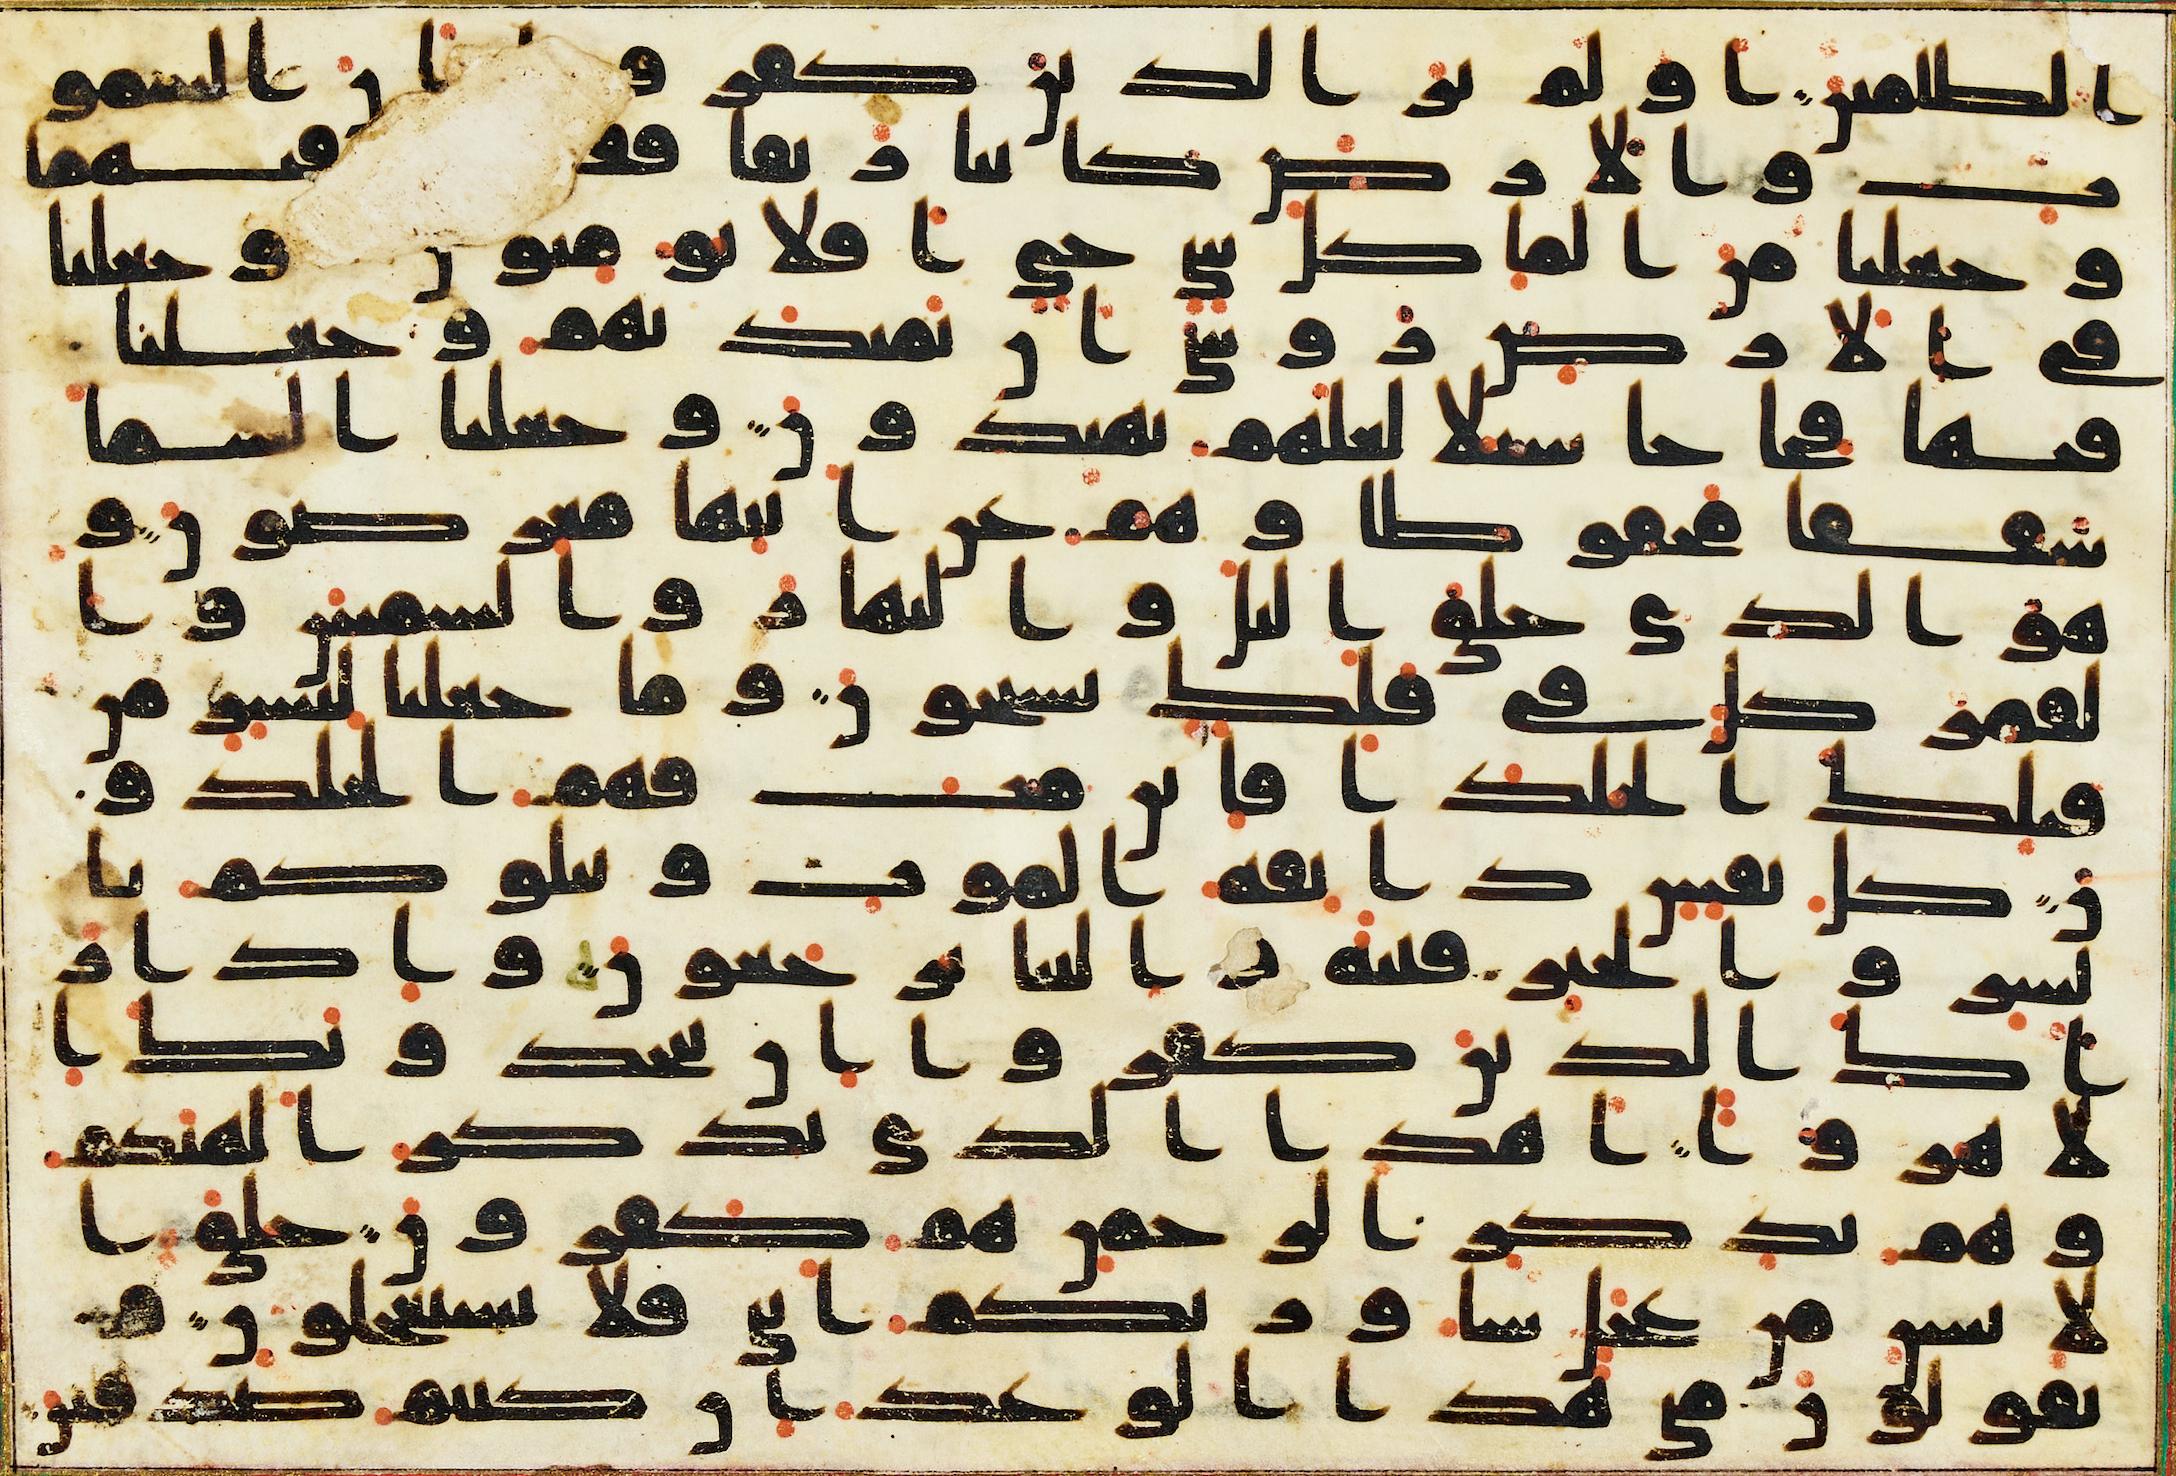 الظلمين اولم ير الذين كفرو ا ان السمو
ت والارض كانتا رتقا ففتقنهما
وجعلنا من الما كل شي حي افلا يومنون وجعلنا
في الارض روسي ان تميد بهم وجعلنا
فيها فجاجا سبلا لعلهم يهتدون وجعلنا السما
سقفا محفوظا وهم عن ايتها معرضون و
هو الذي خلق اليل والنهار والشمس وا
لقمر كل في فلك يسبحون وما جعلنا لبشر من
قبلك الخلد افاين مت فهم الخلدو
ن كل نفس ذايقه الموت ونبلوكم با
لشر والخير فتنه والينا ترجعون واذا ر
اك الذين كفروا ان يتخذونك ا
لا هزوا اهذا الذي يذكر الهتكم
وهم بذكر الرحمن هم كفرون خلق ا
لانسن من عجل ساوريكم ايتي فلا تستعجلون و
يقولون متي هذا الوعد ان كنتم صدقين